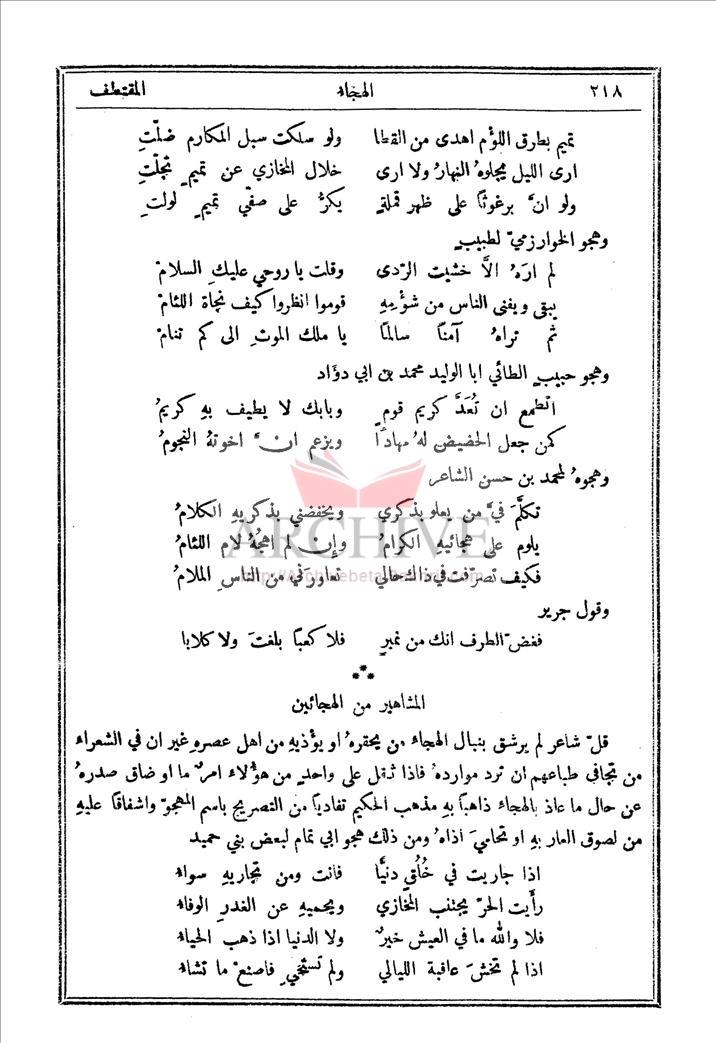 ٢١٨ الهجاء المقتطف
تميم بطرق اللؤم اهدى من القطا ولو سلكت سبل المكارم ضلّتِ
ارى الليل يجلوهُ النهارُ ولا ارى خلال المخازي عن تميمٍ تجلّتِ
ولو انَّ برغوثًا على ظهر قملةٍ يكرُّ على صفّي تميمٍ لولتِ
وهجو الخوارزميّ لطبيبٍ
لم ارهُ الَّا خشيت الرّدى وقلت يا روحي عليكِ السلامْ
يبقى ويفنى الناس من شؤْمهِ قوموا انظروا كيف نجاة اللئامْ
ثم تراهُ آمنًا سالمًا يا ملك الموتِ الى كم تنامْ
وهجو حبيبٍ الطائي ابا الوليد محمد بن ابي دؤاد
اتطمع ان تُعَدَّ كريم قومٍ وبابك لا يطيف بهِ كريمُ
كمن جعل الحضيض لهُ مهادًا ويزعم انَّ اخوتهُ النجومُ
وهجوهُ لمحمد بن حسن الشاعر
تكلَّمَ فيَّ من يعلو بذكري ويخفضني بذكريهِ الكلامُ
يلوم على هجائيهِ الكرامُ وإن لم اهجُهُ لام اللئامُ
فكيف تصرّفت في ذاك حالي تعاورَني من الناسِ الملامُ
وقول جرير
فغضّ الطرف انك من نميرٍ فلا كعبًا بلغتَ ولا كلابا
⁂
المشاهير من الهجائين
قلّ شاعر لم يرشق بنبال الهجاء من يحقرهُ او يؤذيهِ من اهل عصرهِ غير ان في الشعراء
من تجافي طباعهم ان ترد مواردهُ فاذا ثقل على واحدٍ من هؤلاء امرٌ ما او ضاق صدرهُ
عن حال ما عاذ بالهجاء ذاهبًا بهِ مذهب الحكيم تفاديًا من التصريح باسم المهجوّ واشفاقًا عليهِ
من لصوق العار بهِ او تحاميَ اذاهُ ومن ذلك هجو ابي تمام لبعض بني حميد
اذا جاريت في خُلُقٍ دنيًّا فانت ومن تجاريهِ سواءُ
رأَيت الحرّ يجتنب المخازي ويحميهِ عن الغدرِ الوفاءُ
فلا والله ما في العيش خيرٌ ولا الدنيا اذا ذهب الحياءُ
اذا لم تخشَ عاقبة الليالي ولم تستحيِ فاصنعْ ما تشاءُ
ARCHIVE